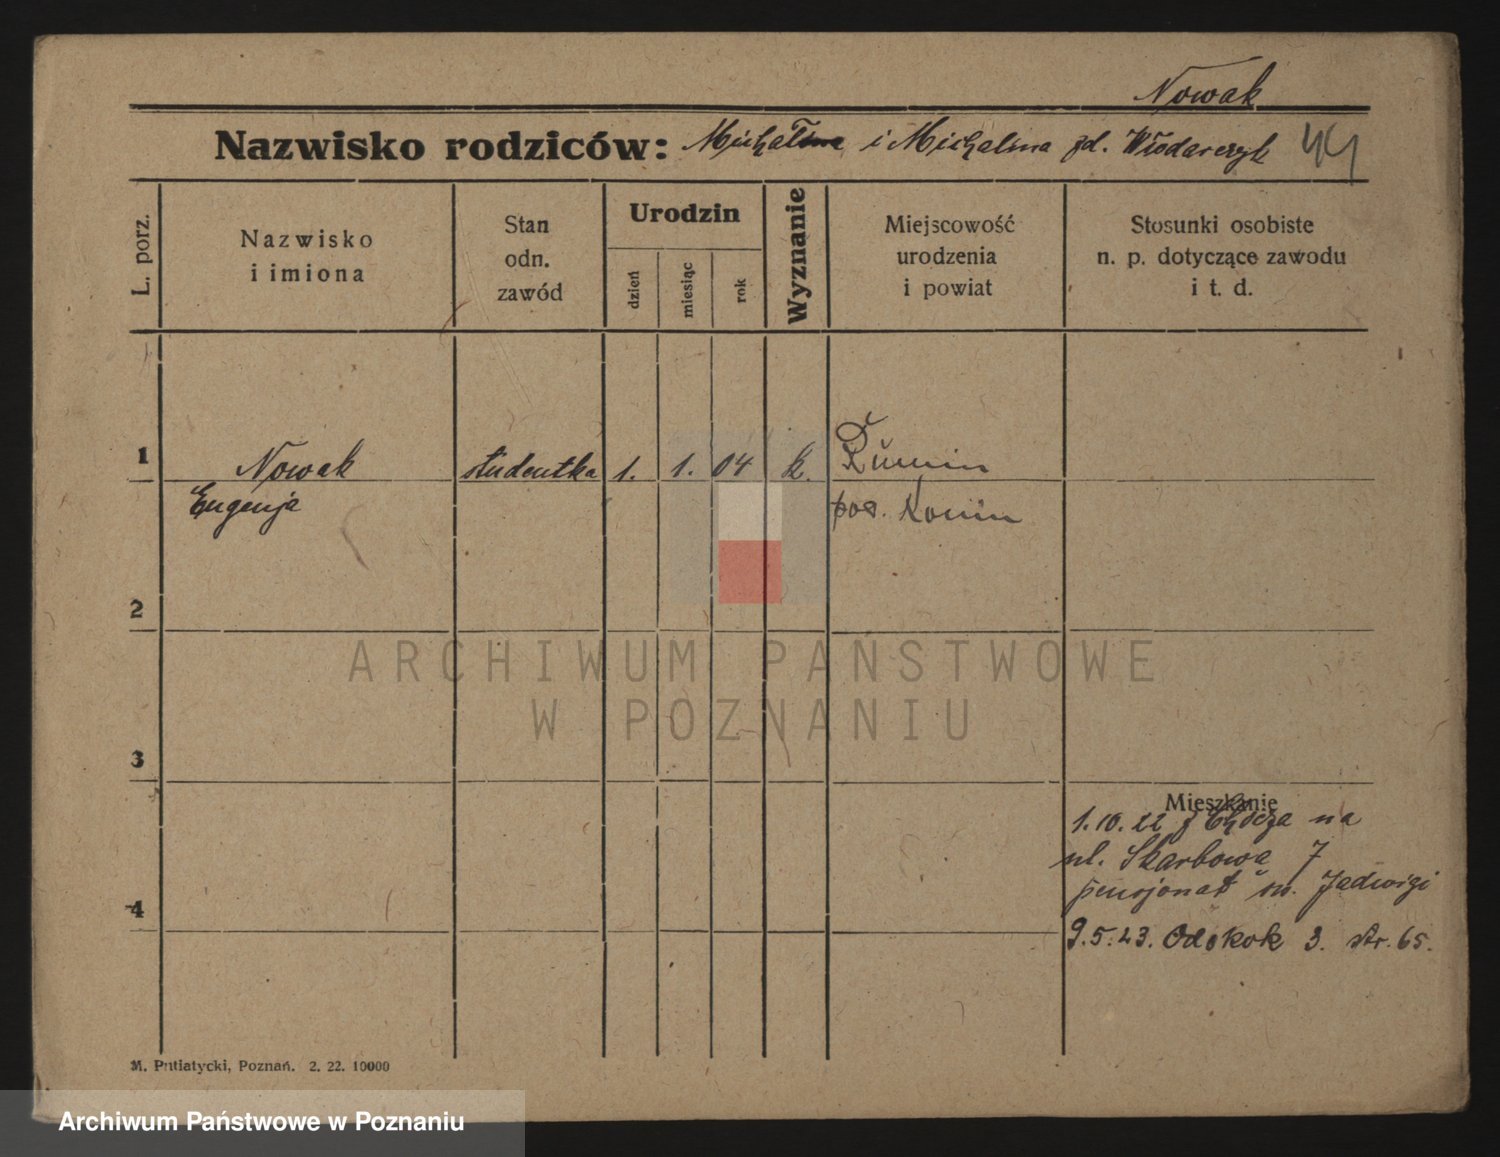 Nowak
Nazwisko rodziców: Michał i Michalina zd. Włodarczyk 44
L. porz.
Nazwisko
i imiona
Stan
odn.
zawód
Urodzin
dzień
miesiąc
rok
Wyznanie
Miejscowość
urodzenia
i powiat
Stosunki osobiste
n. p. dotyczące zawodu
i t. d.
1 Nowak studentka 1. 1. 04 k.
Eugenja pow. Konin
2
3
Mieszkanie
1.10.22 z na
ul. Skarbowa 7
4 pensjonat św. Jadwigi
9.5.23. 3. str. 65.
M. Putiatycki, Poznań. 2. 22. 10000
ARCHIWUM PAŃSTWOWE
W POZNANIU
Archiwum Państwowe w Poznaniu